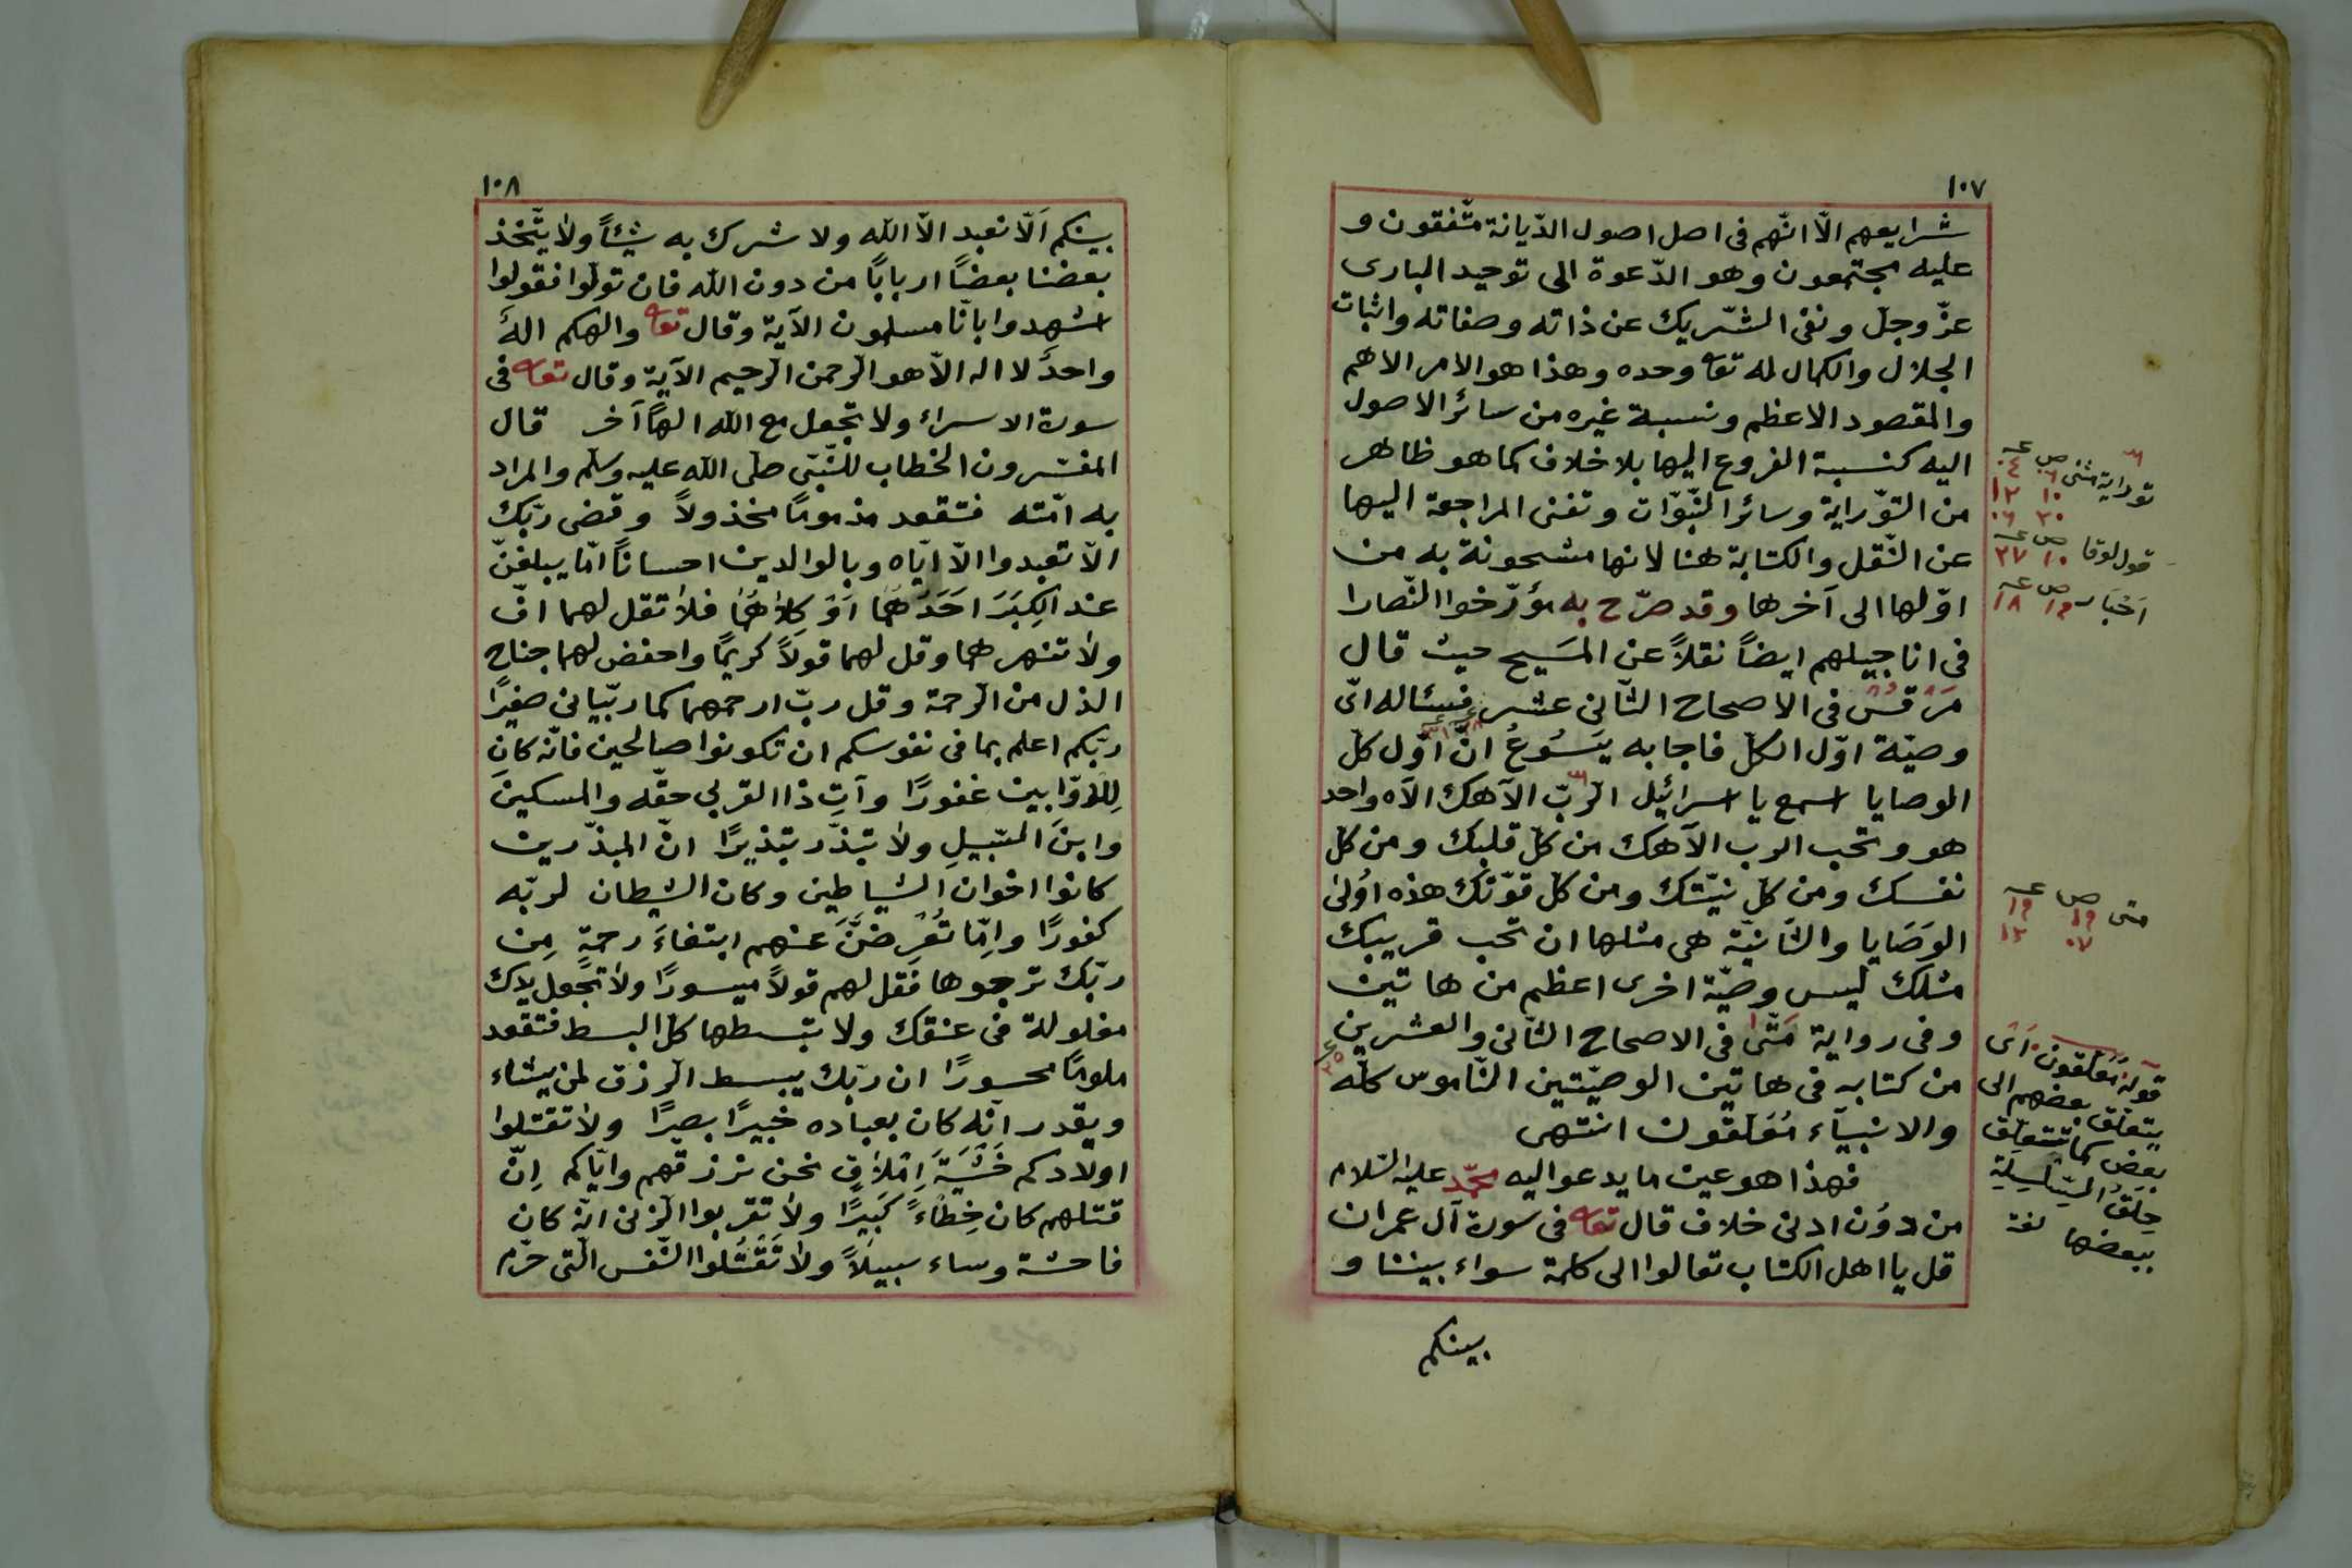 ١٠٧
شرايعهم الّا انّهم فى اصل اصول الدّيانة متّفقون و
عليه مجتمعون وهو الدّعوة الى توحيد البارى
عزّ وجلّ ونفى الشّريك عن ذاته وصفاته واثبات
الجلال والكمال له تعا وحده وهذا هو الامر الاهم
والمقصود الاعظم ونسبة غيره من سائر الاصول
اليه كنسبة الفروع اليها بلا خلاف كما هو ظاهر
من التوّراية وسائر النّبوّات وتغنى المراجعة اليها
عن النّقل والكتابة هنا لانها مشحونة به من
اوّلها الى آخرها وقد صرّح به مؤرّخوا النّصارا
فى اناجيلهم ايضاً نقلاً عن المَسيح حيث قال
مَرقُس فى الاصحاح الثّانى عشر فسئاله اىّ
وصيّة اوّل الكلّ فاجابه يَسُوعُ انّ اوّل كلّ
الوصايا اسمع يا اسرائيل الرّبّ الآهك الآه واحد
هو وتحب الرب الآهك من كلّ قلبك ومن كلّ
نفسك ومن كلّ نيّتك ومن كلّ قوّتك هذه اوُلىٰ
الوَصَايا والثّانيّة هى مثلها ان تحب قريبك
مثلك ليس وصيّة اخرى اعظم من هاتين
وفى رواية مَتّى فى الاصحاح الثّانى والعشرين
من كتابه فى هاتين الوصيّتين النّاموس كلّه
والانبيآء مُعَلّقون انتهى
فهذا هو عين ما يدعوا اليه محمّد عليه السّلام
من دوُن ادنى خلاف قال تعا فى سورة آل عمران
قل يا اهل الكتاب تعالوا الى كلمة سواء بيننا و
بينكم
توراية مثنى ص عـ
٠٦ ٠٤
١٠ ١٢
٣٠ ٠٦
قول لوقا ص عـ
١٠ ٢٧
اَحْبَار ص عـ
١٩ ١٨
متى ص عـ
١٩ ١٩
٠٧ ١٢
قولهُ مُعَلّقون اَىْ
يتعلّق بعضهم الى
بعض كما تتعلّق
حِلَقُ السّلسِلة
ببعضها لغة
١٠٨
بينكم اَلّا نعبد الّا الله ولا نشرك به شيئاً ولا يتّخذ
بعضنا بعضاً اربابًا من دون الله فان تولّوا فقولوا
اشهدوا بانّا مسلمون الآية وقال تعا والهكم الهٌ
واحدٌ لا اله الّا هو الرّحمن الرّحيم الآية وقال تعا فى
سورة الاسراء ولا تجعل مع الله الهًا آخر قال
المفسّرون الخطاب للنّبىّ صلّى الله عليه وسلّم والمراد
به امّته فتقعد مذمومًا مخذولاً وقضى ربّك
الّا تعبدوا الّا ايّاه وبالوالدين احسانًا امّا يبلغنّ
عند الكِبَرَ اَحَدُهُمَا اَوْ كِلاهُمَا فلا تقل لهما افّ
ولا تنهرهما وقل لهما قولاً كريمًا واخفض لهما جناح
الذل من الرّحمة وقل ربّ ارحمهما كما ربّيانى صغيرًا
ربّكم اعلم بما فى نفوسكم ان تكونوا صالحين فانّه كان
لِلاَوّابين غفورًا وآتِ ذا القربى حقّه والمسكينَ
وابنَ السّبيلِ ولا تبذّر تبذيرًا انّ المبذّرين
كانوا اخوان الشياطين وكان الشيطان لربّه
كفورًا واِمّا تُعْرِضَنَّ عنهم ابتغاءَ رحمةٍ مِن
ربّك ترجوها فقل لهم قولاً ميسورًا ولا تجعل يدك
مغلولة فى عنقك ولا تبسطها كلّ البسط فتقعد
ملومًا محسورًا ان ربّك يبسط الرّزق لمن يشاء
ويقدر انّه كان بعباده خبيرًا بصيرًا ولا تقتلوا
اولادكم خَشْيَةَ اِمْلاقٍ نحن نرزقهم وايّاكم اِنّ
قتلهم كان خِطْاءً كَبيرًا ولا تقربوا الزنى انّه كان
فاحشة وساء سبيلاً ولا تَقْتُلوا النّفس الّتى حرّم